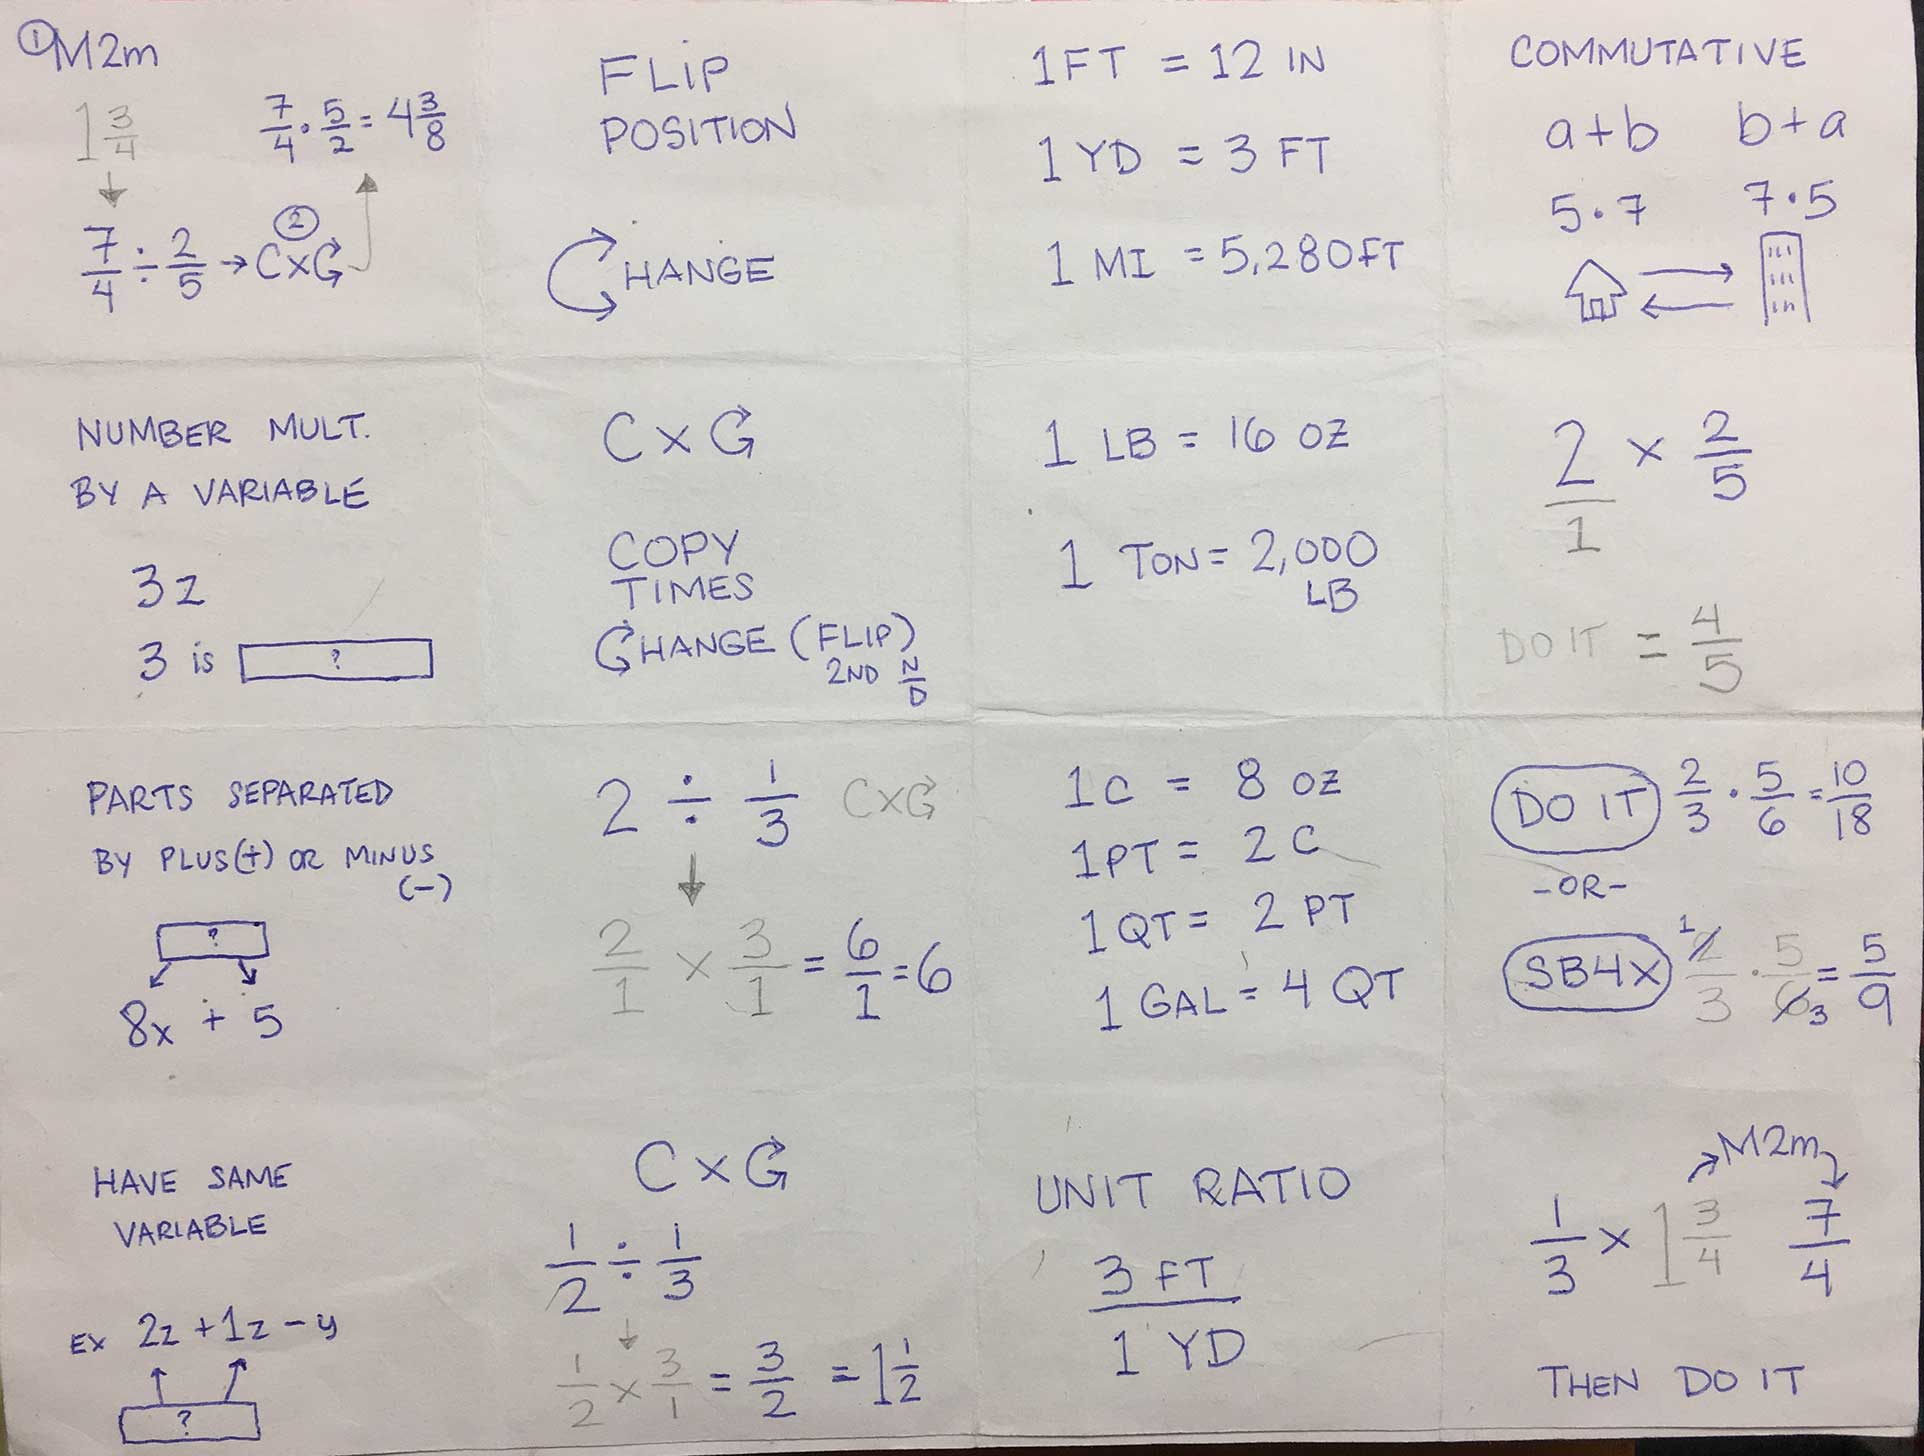 ① M2m
1 3/4
7/4 · 5/2 = 4 3/8
↓
7/4 ÷ 2/5 → C×G ②
FLIP
POSITION
CHANGE
1 FT = 12 IN
1 YD = 3 FT
1 MI = 5,280 FT
COMMUTATIVE
a+b b+a
5·7 7·5
NUMBER MULT.
BY A VARIABLE
3z
3 is ?
C×G
COPY
TIMES
CHANGE (FLIP)
2ND N/D
1 LB = 16 OZ
1 TON = 2,000
LB
2/1 × 2/5
DO IT = 4/5
PARTS SEPARATED
BY PLUS(+) OR MINUS
(-)
?
8x + 5
2 ÷ 1/3 C×G
↓
2/1 × 3/1 = 6/1 = 6
1C = 8 OZ
1PT = 2 C
1QT = 2 PT
1 GAL = 4 QT
DO IT 2/3 · 5/6 = 10/18
-OR-
SB4X 1 2/3 · 5/6 3 = 5/9
HAVE SAME
VARIABLE
EX 2z + 1z - y
?
C×G
1/2 ÷ 1/3
↓
1/2 × 3/1 = 3/2 = 1 1/2
UNIT RATIO
3 FT
1 YD
→ M2m
1/3 × 1 3/4 7/4
THEN DO IT